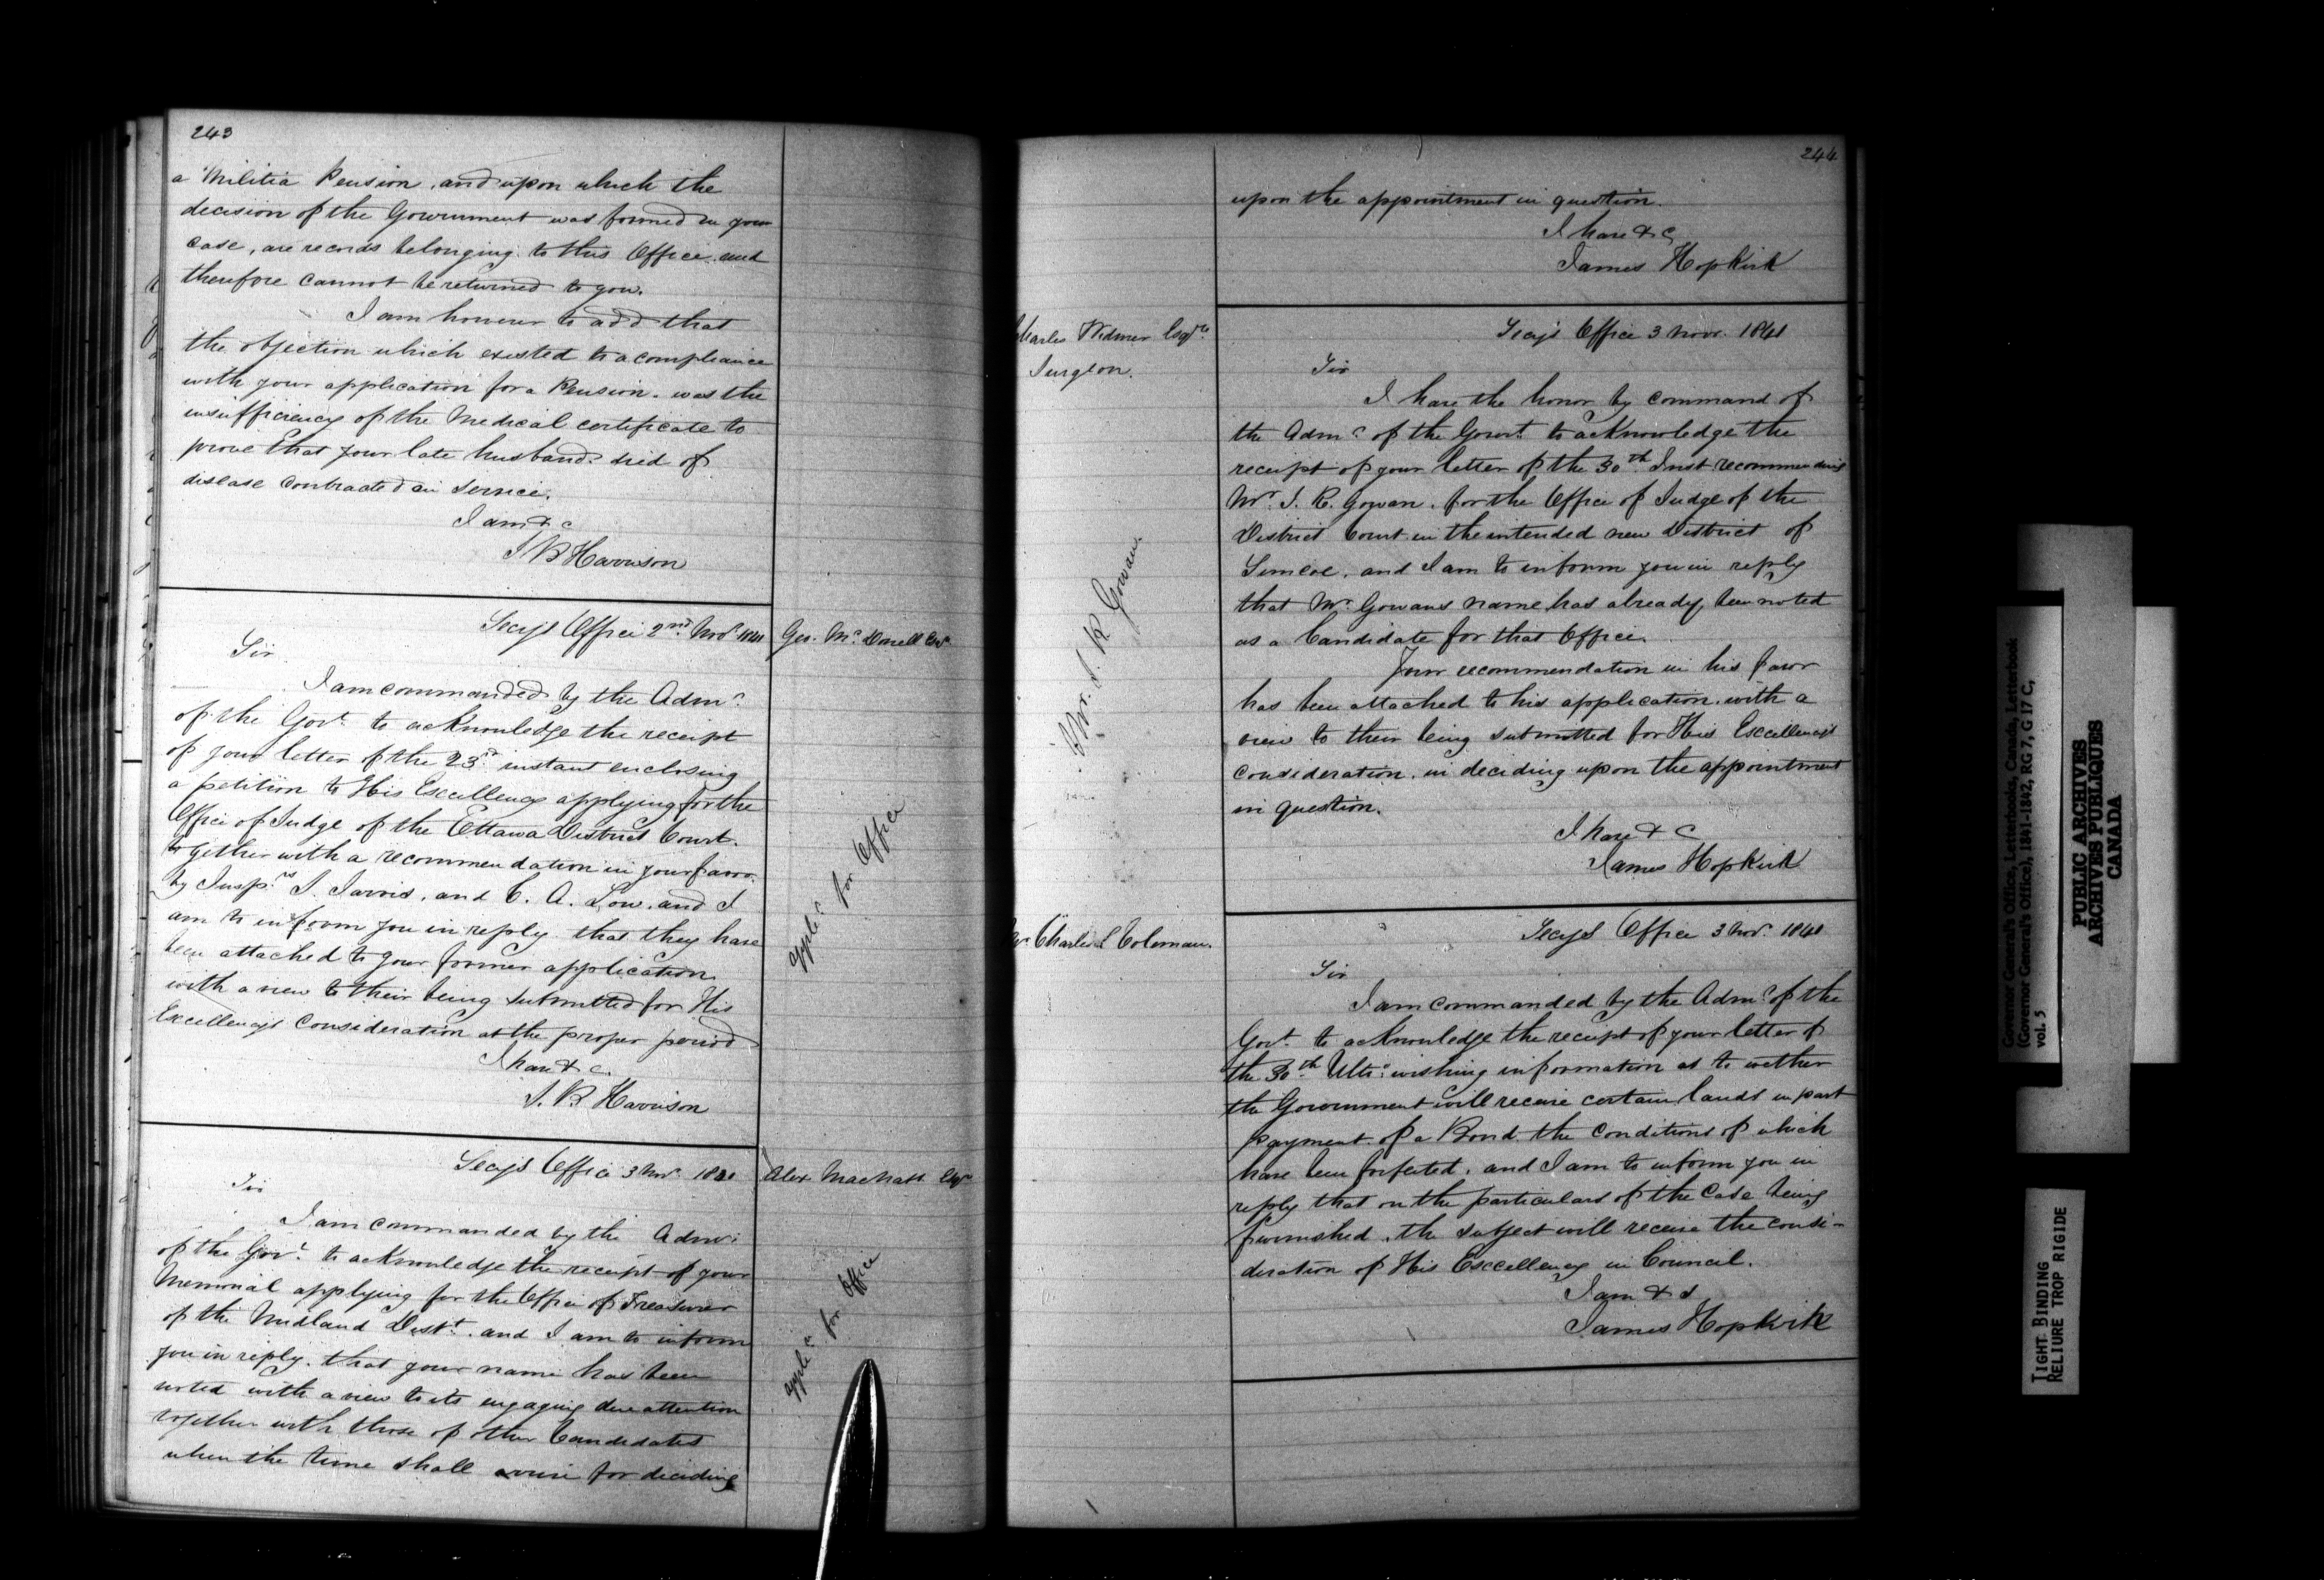 243
a Militia Pension, and upon which the
decision of the Government was formed in your
case, are records belonging to this Office and
therefore cannot be returned to you.
I am honour to add that
the objection which existed to a compliance
with your application for a Pension. was the
insufficiency of the Medical certificate to
prove that your late husband died of
disease contracted in service.
I am & c
S B Harrison
Secy's Office 2nd Novr 1841
Geo. McDonell Esqr
Sir
I am commanded by the Admr
of the Govt to acknowledge the receipt
of your letter of the 23rd instant enclosing
a petition to His Excellency applying for the
Office of Judge of the Ottawa District Court.
together with a recommendation in your favor
by Messrs Jarvis, and C. A. Low. and I
am to inform you in reply that they have
been attached to your former application
with a view to their being submitted for His
Excellency's consideration at the proper period
I have & c.
S. B Harrison
applc for Office
Secy's Office 3 Novr 1841
Alex MacNabb Esqr
Sir
I am commanded by the Admr
of the Govt to acknowledge the receipt of your
Memorial applying for the Office of Treasurer
of the Midland Distt. and I am to inform
you in reply. that your name has been
noted with a view to its engaging due attention
together with those of other Candidates
when the time shall arise for deciding
applc for Office
244
upon the appointment in question.
I have & c
James Hopkirk
Charles Widmer Esqre
Surgeon.
Secy's Office 3 Novr. 1841
Sir
I have the honor by command of
the Admr of the Govert to acknowledge the
receipt of your letter of the 30th Inst recommending
Mr J. R. Gowan. for the Office of Judge of the
District Court in the intended new District of
Simcoe, and I am to inform you in reply
that Mr Gowans name has already been noted
as a Candidate for that Office.
Your recommendation in his favor
has been attached to his application. with a
view to their being submitted for His Excellency's
consideration. in deciding upon the appointment
in question.
I have & C
James Hopkirk
J. R Gowan.
Mr Charles L Coleman.
Secys Office 3 Novr. 1841
Sir
I am commanded by the Admr of the
Govt. to acknowledge the receipt of your letter of
the 30th Ulto wishing information as to wether
the Government will receive certain lands in part
payment of a Bond the conditions of which
have been forfeited. and I am to inform you in
reply that on the particulars of the Case being
furnished. the subject will receive the consi-
deration of His Excellency in Council.
I am & s
James Hopkirk
Governor General's Office, Letterbooks, Canada, Letterbook
(Governor General's Office), 1841-1842, RG 7, G 17 C,
vol. 5
PUBLIC ARCHIVES
ARCHIVES PUBLIQUES
CANADA
TIGHT BINDING
RELIURE TROP RIGIDE